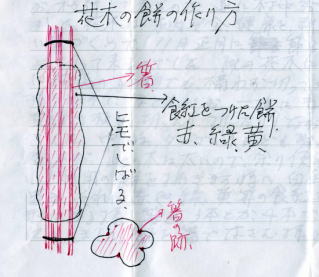 花木の餅の作り方
箸
食紅をつけた餅
赤、緑、黄
ヒモでしばる、
箸の跡